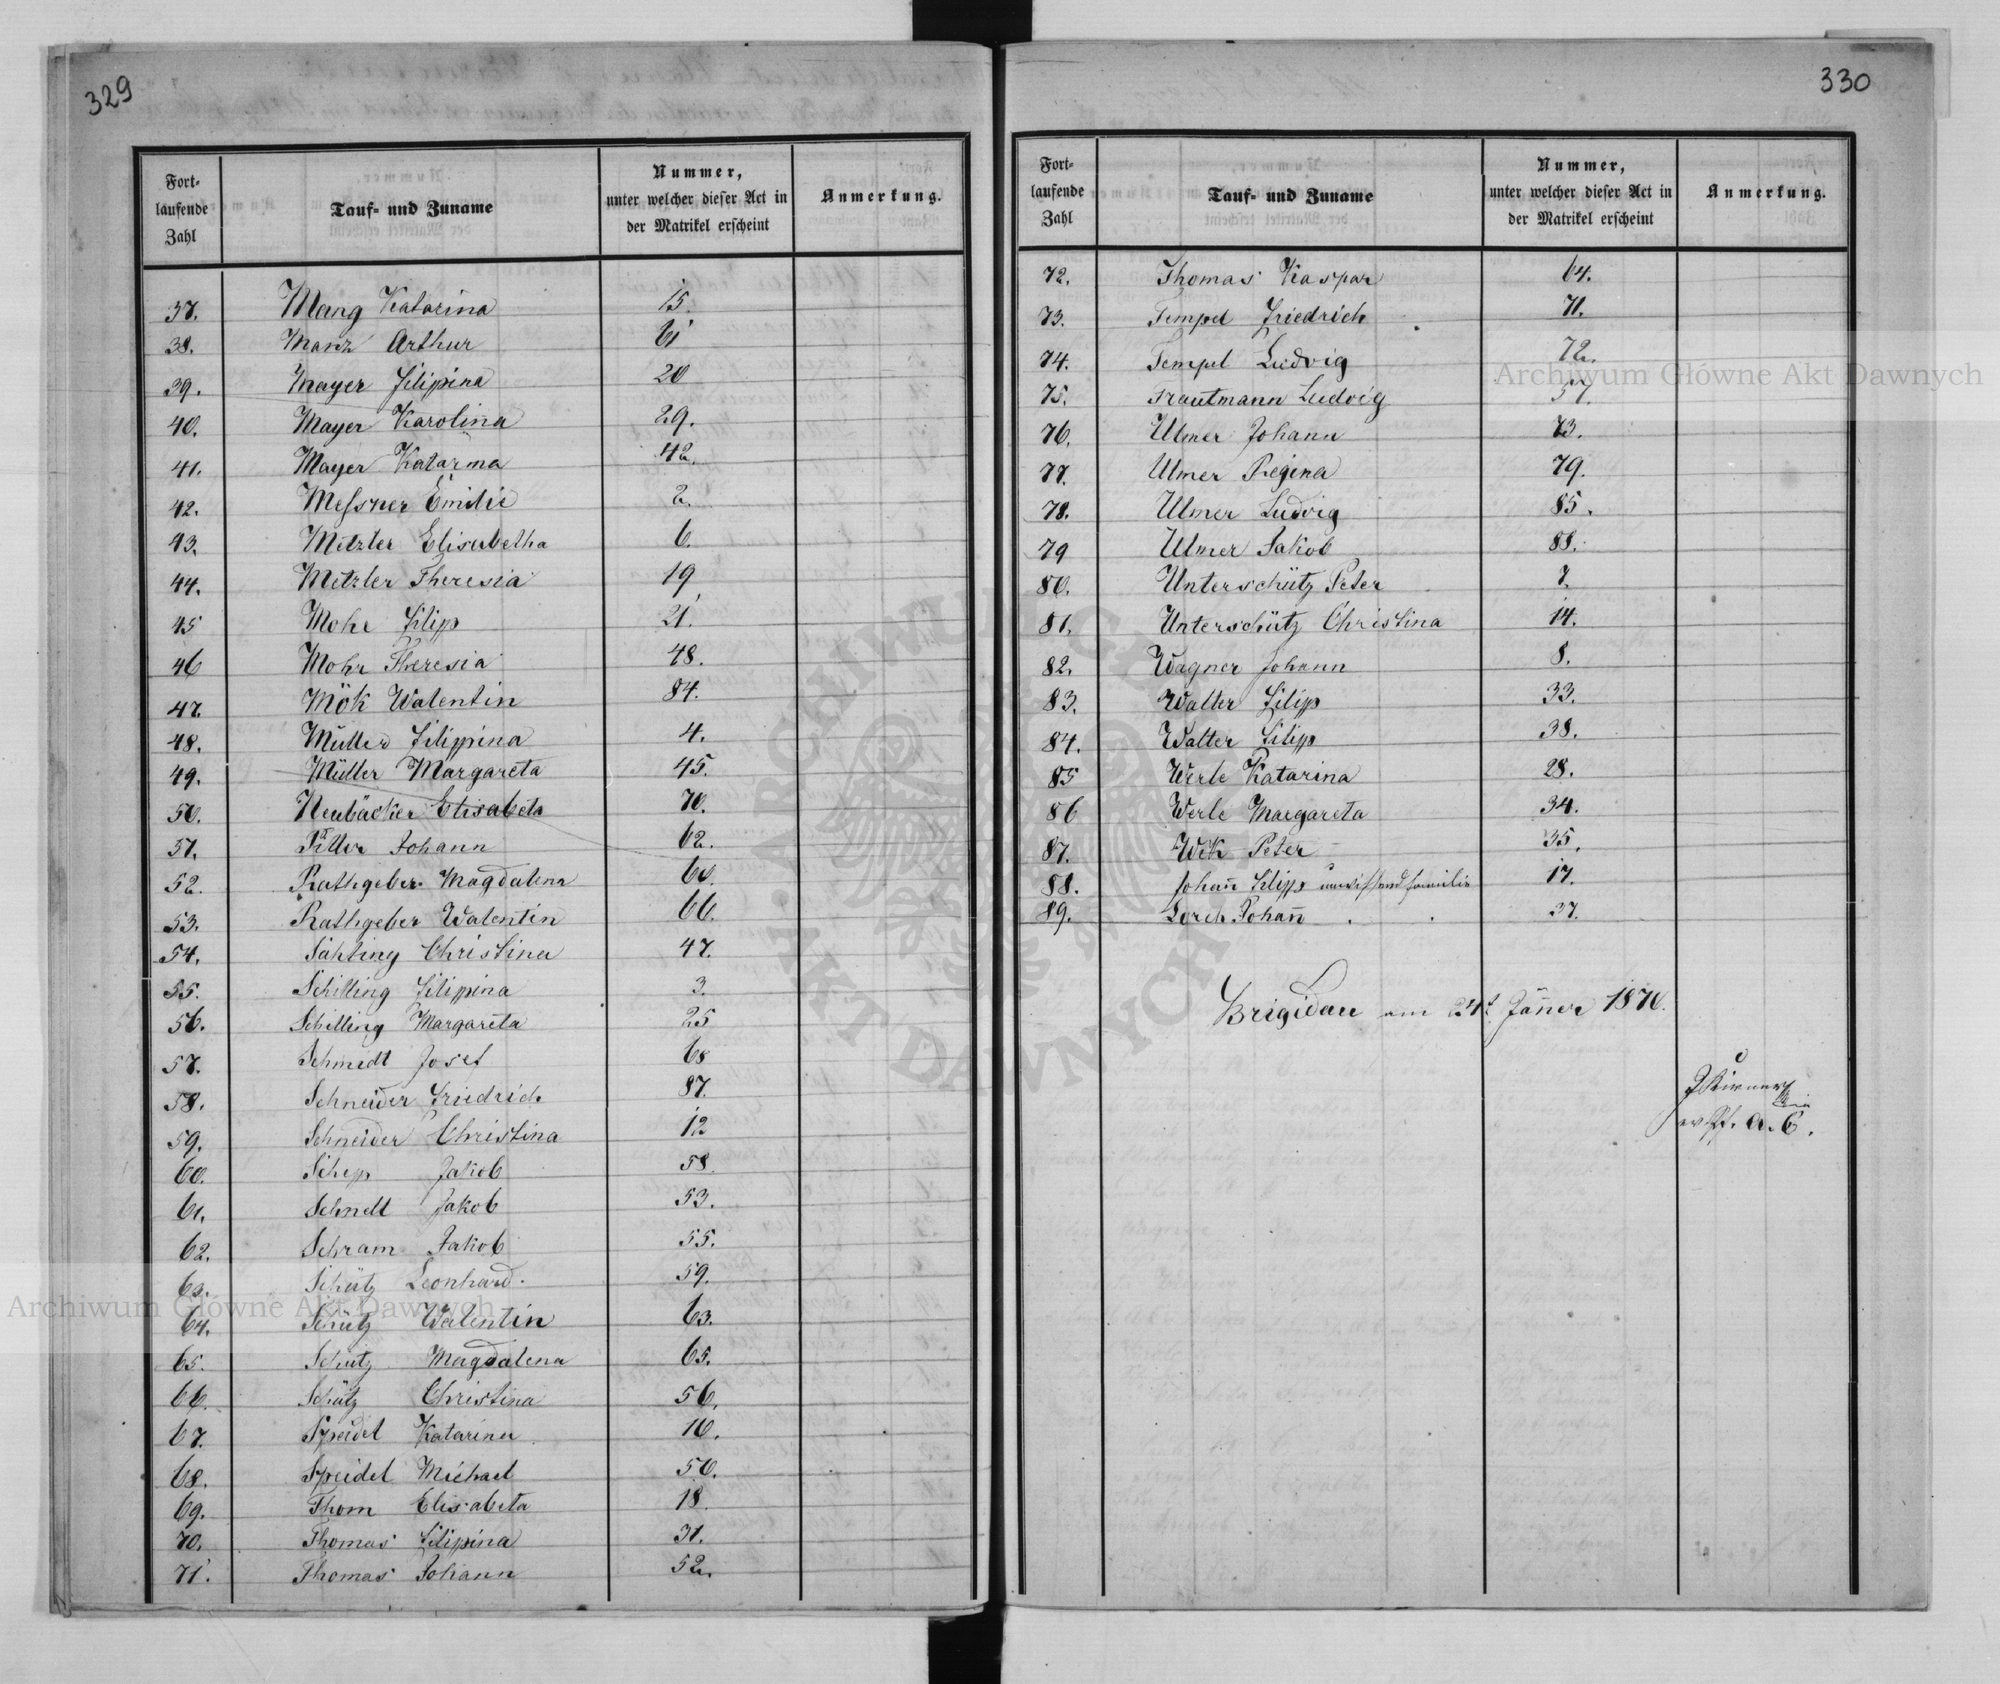 329
Fort-
laufende
Zahl
Tauf- und Zuname
Nummer,
unter welcher dieser Act in
der Matrikel erscheint
Anmerkung.
37. Mang Katarina 15.
38. Manz Arthur 61
39. Mayer Filipina 20
40. Mayer Karolina 29.
41. Mayer Katarina 42.
42. Meſsner Emilie 2.
43. Metzler Elisabetha 6.
44. Metzler Theresia 19
45 Mohr Filip 21.
46 Mohr Theresia 48.
47. Mök Walentin 84.
48. Müller Filippina 4.
49. Müller Margareta 45.
50. Neubäcker Elisabeta 70.
51. Johann 62.
52. Rathgeber Magdalena 60.
53. Rathgeber Walentin 66.
54. Sähling Christina 47.
55. Schilling Filippina 3.
56. Schilling Margareta 25
57. Schmedt Josef 68
58. Schneider Friedrich 87.
59. Schneider Christina 12
60. Schep Jakob 58.
61. Schnell Jakob 53.
62. Schram Jakob 55.
63. Schütz Leonhard. 59.
64. Schütz Walentin 63.
65. Schütz Magdalena 65.
66. Schütz Christina 56.
67. Speidel Katarina 10.
68. Speidel Michael 50.
69. Thom Elisabeta 18.
70. Thomas Filipina 31.
71. Thomas Johann 52.
330
Fort-
laufende
Zahl
Tauf- und Zuname
Nummer,
unter welcher dieser Act in
der Matrikel erscheint
Anmerkung.
72. Thomas Kaspar 64.
73. Tempel Friedrich 71.
74. Tempel Ludvig 72.
75. Trautmann Ludvig 57.
76. Ulmer Johann 73.
77. Ulmer Regina 79.
78. Ulmer Ludvig 85.
79 Ulmer Jakob 88.
80. Unterschütz Peter 7.
81. Unterschütz Christina 14.
82. Wagner Johann 8.
83. Walter Filip 33.
84. Walter Filip 38.
85 Werle Katarina 28.
86 Werle Margareta 34.
87. Wek Peter 35.
88. Johan̄ Filipp Familie 17.
89. Lorch Johan̄ 37.
Brigidau am 24t Jänner 1870.
A. C.
Archiwum Główne Akt Dawnych
Archiwum Główne Akt Dawnych
ARCHIWUM GŁÓWNE AKT DAWNYCH